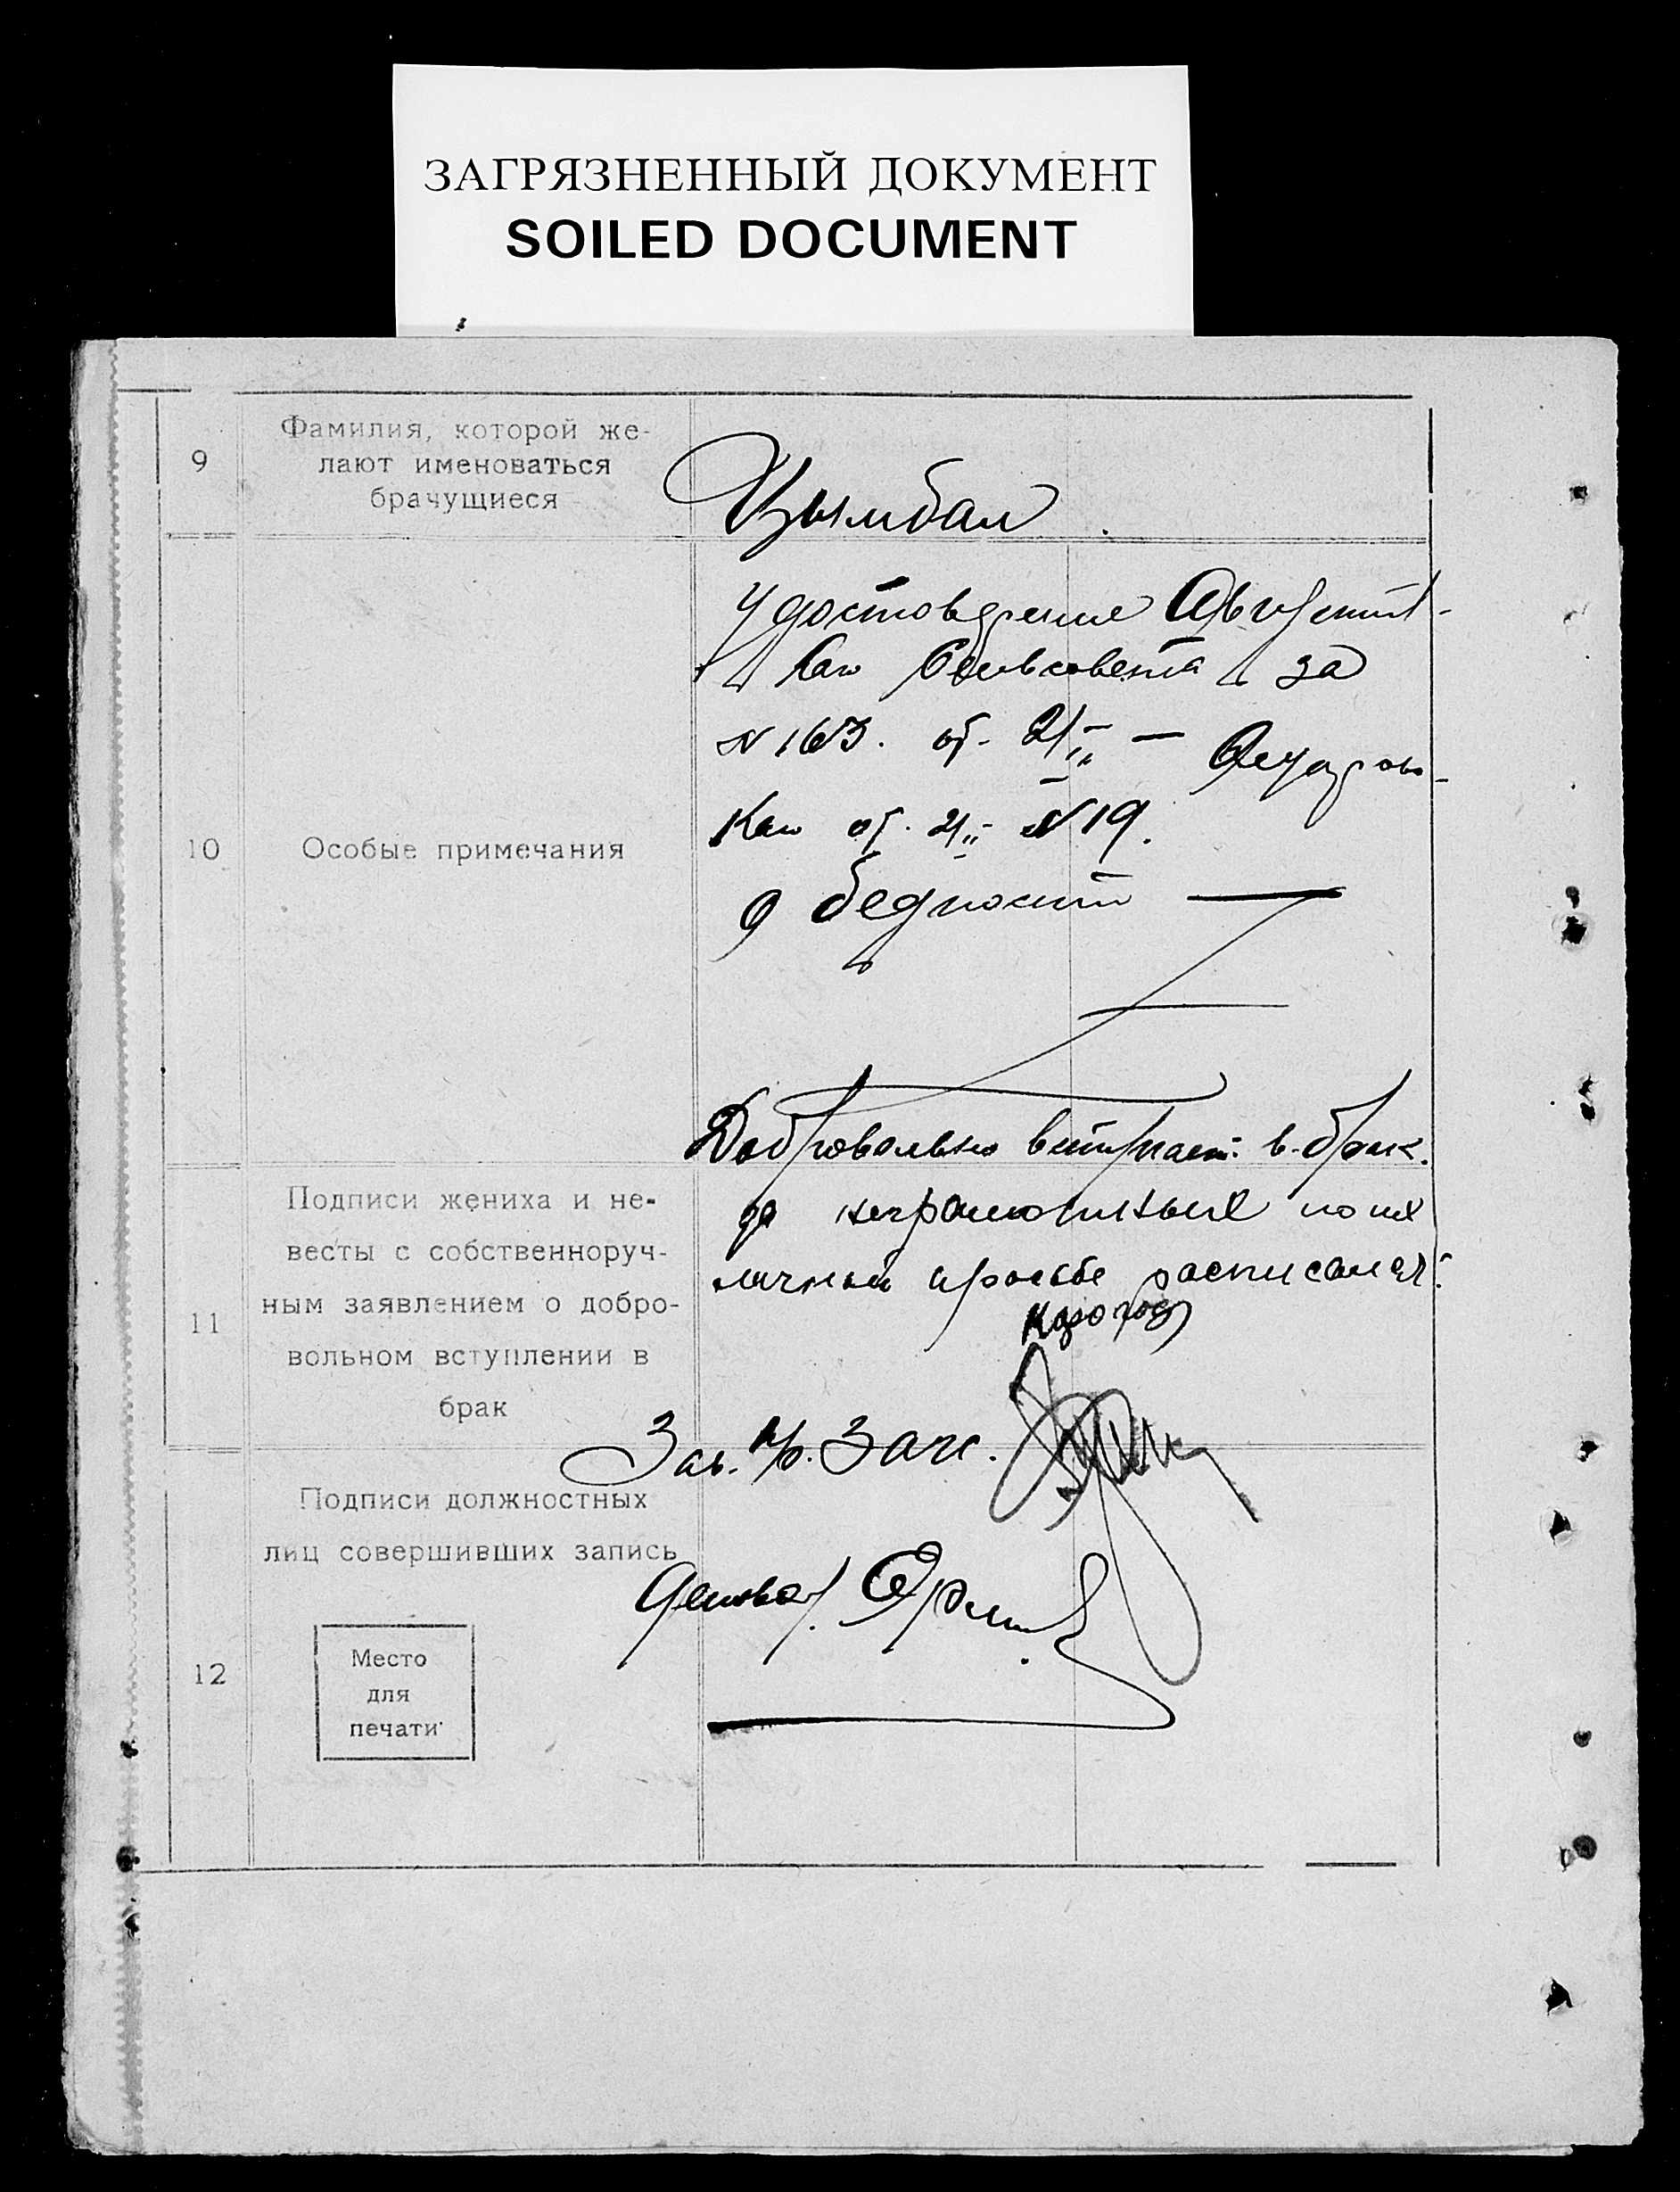 ЗАГРЯЗНЕННЫЙ ДОКУМЕНТ
SOILED DOCUMENT
9
Фамилия, которой же-
лают именоваться
брачущиеся
Цымбал
10
Особые примечания
Удостоверение
Сельсовета за
N 163. от. 21/II —
от. 21/II N 19.
о бедности —
11
Подписи жениха и не-
весты с собственноруч-
ным заявлением о добро-
вольном вступлении в
брак
Добровольно вступаем в брак.
за неграмотных по их
личной просьбе расписался:
Зав. Загс.
12
Подписи должностных
лиц совершивших запись
Место
для
печати